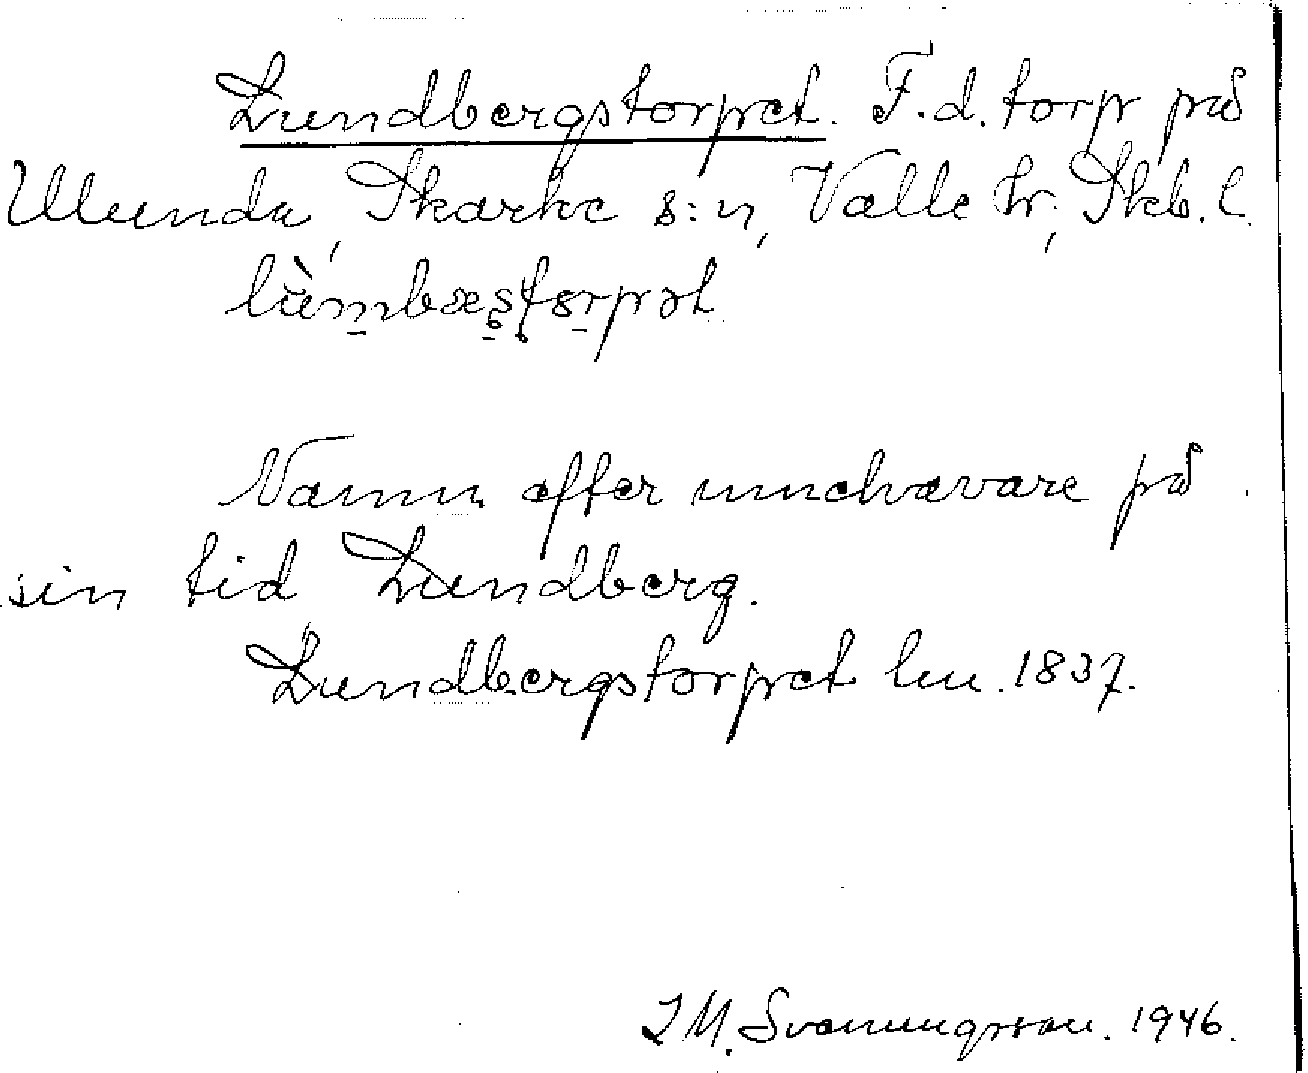 Lundbergstorpet. F.d. torp på
Ulunda, Skärke s:n, Valle hr, Skb. l.
Namn efter innehavare på
sin tid Lundberg.
Lundbergstorpet hu. 1837.
I M. Svanungsson. 1946.